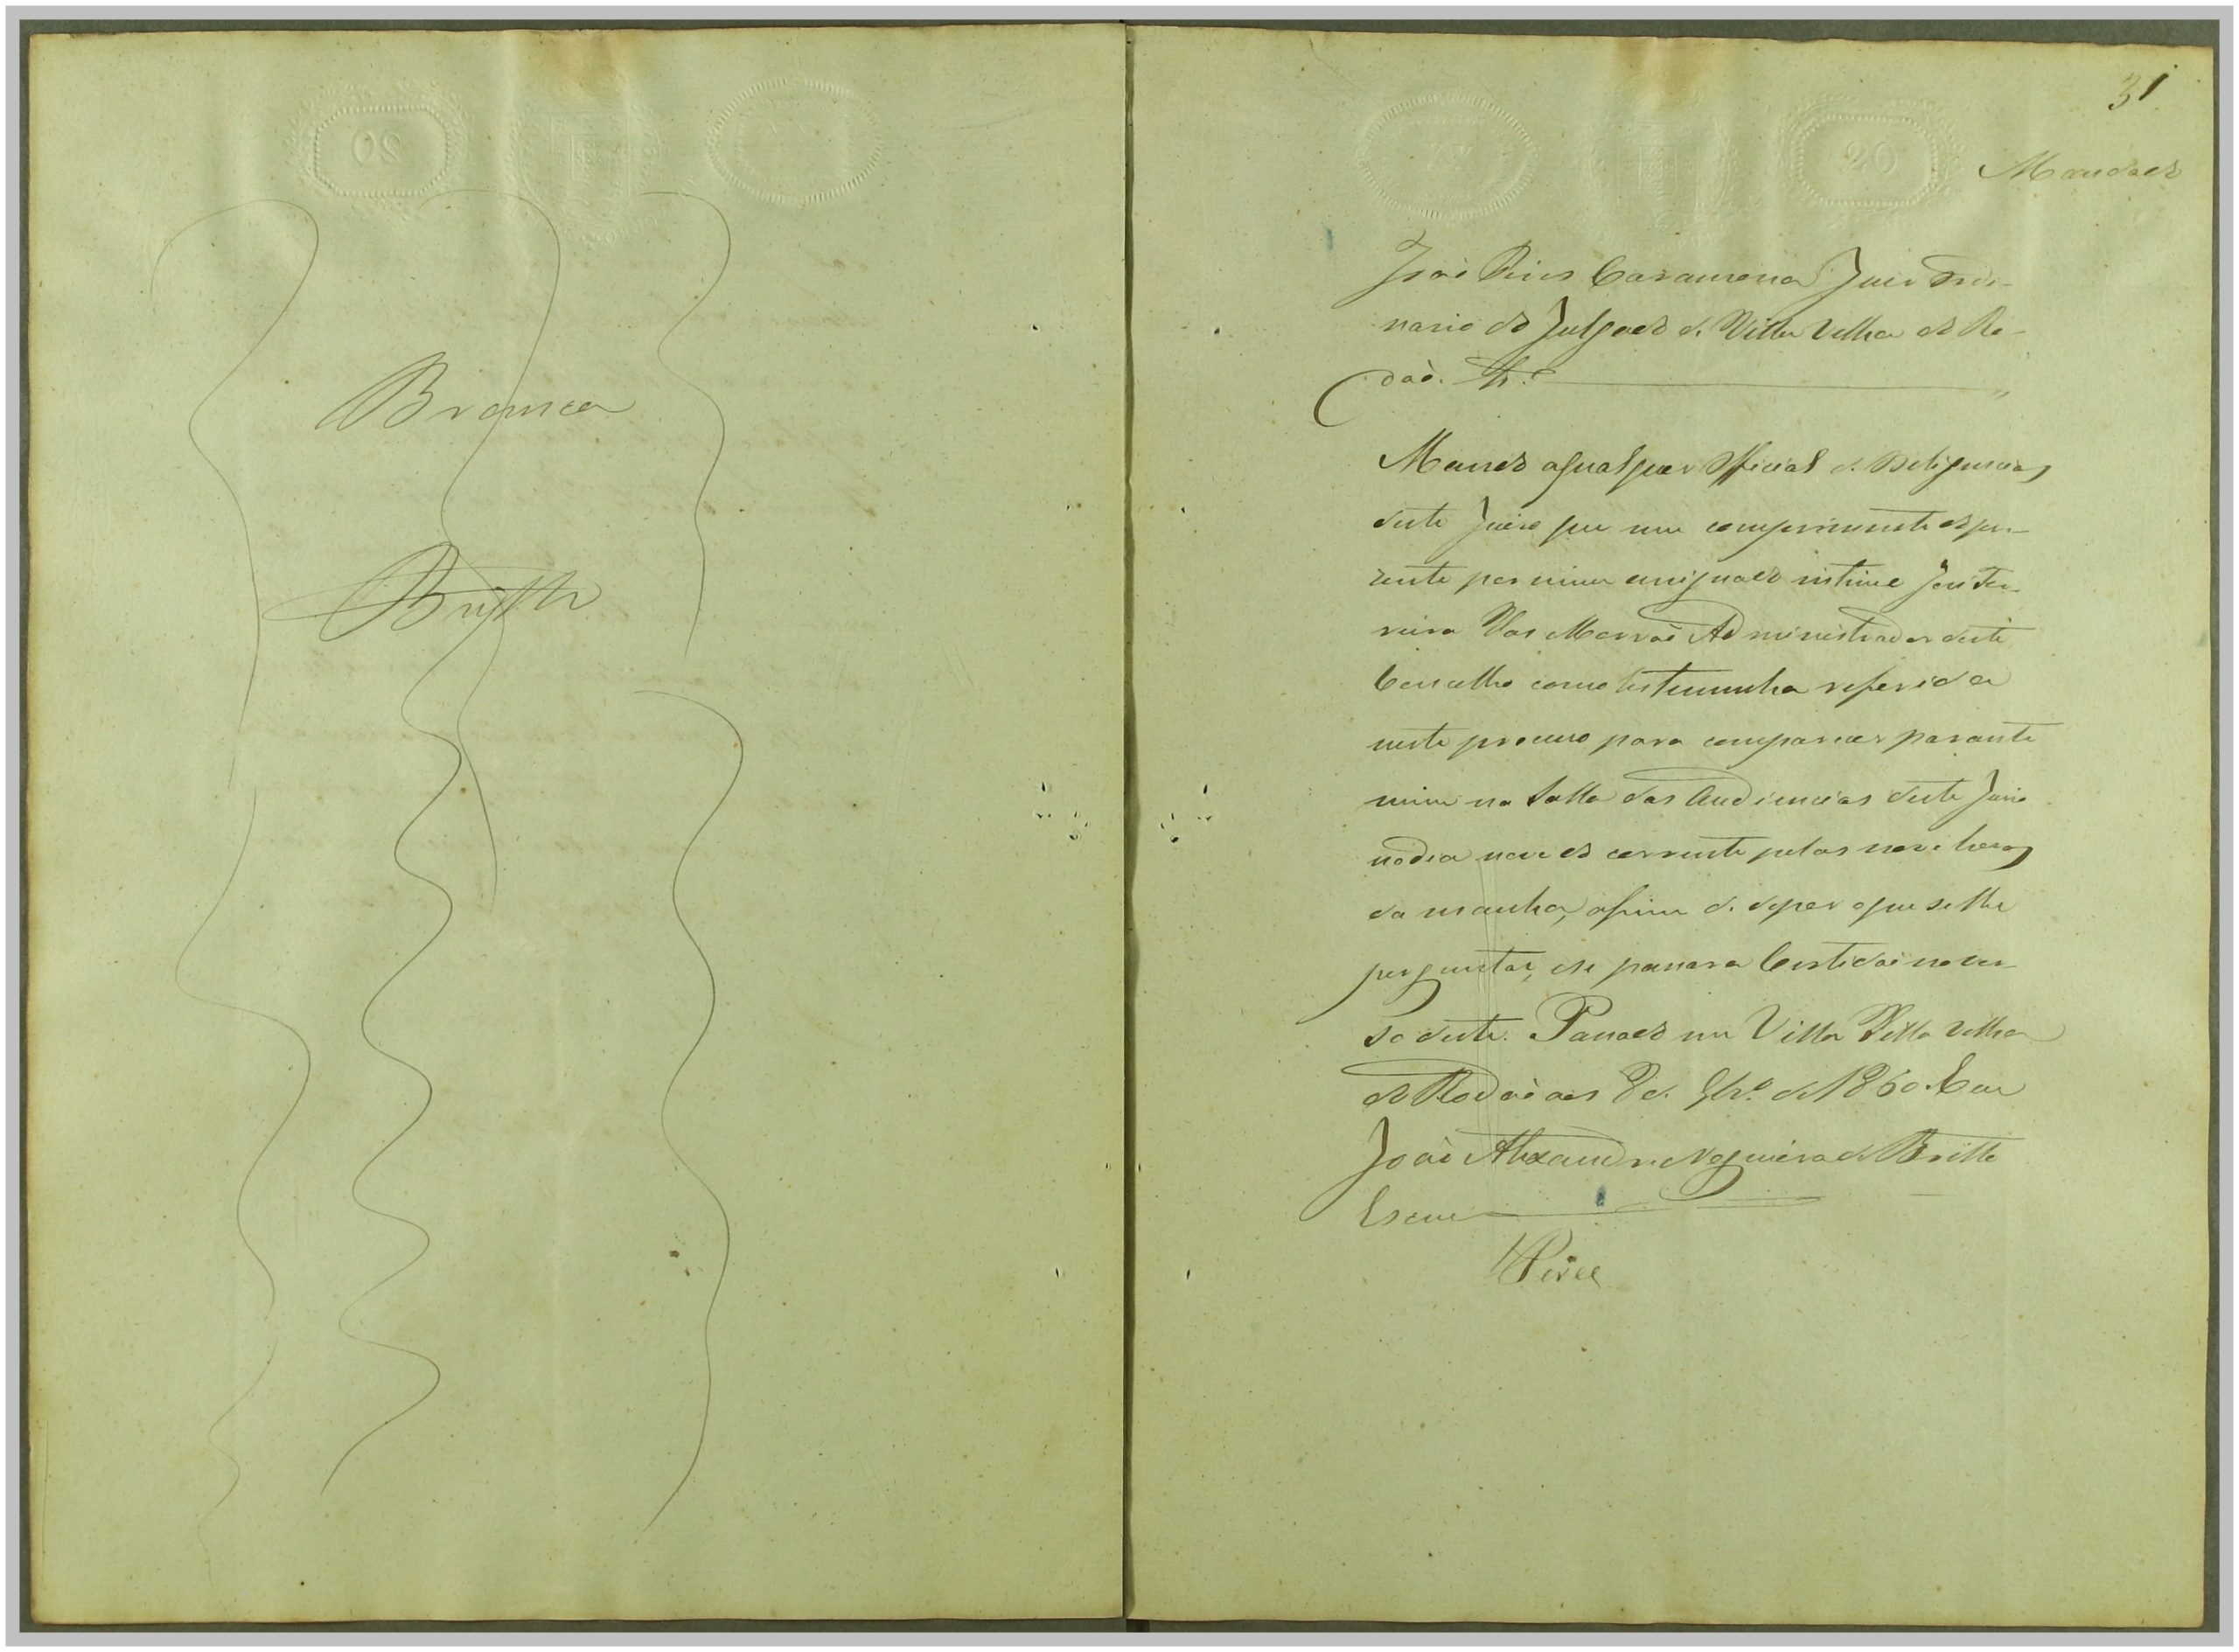 Branca
Britto
31
Mandado
João Pires Caramona Juiz Ordi-
nario do Julgado de Villa Velha de Ro-
daõ. &.ª
Mando aqualquer Official de Deligencias
deste Juizo que em comprimento do pre-
zente por mim assignado intime José Fer-
reira Vas Morraõ Administrador deste
Concelho como testemunha referida
neste processo para comparecer parante
mim na Salla das Audiencias deste Juizo
no dia nove do corrente pelas nove horas
da manha, afim de depor oque se lhe
perguntar, e se passara Certidaõ no ver-
so deste. Passado em Villa Villa Velha
de Rodaõ aos 8 de de 1860. Eu
Joaõ Alexandre Nogueira de Britto
Escrivi
Pires
20